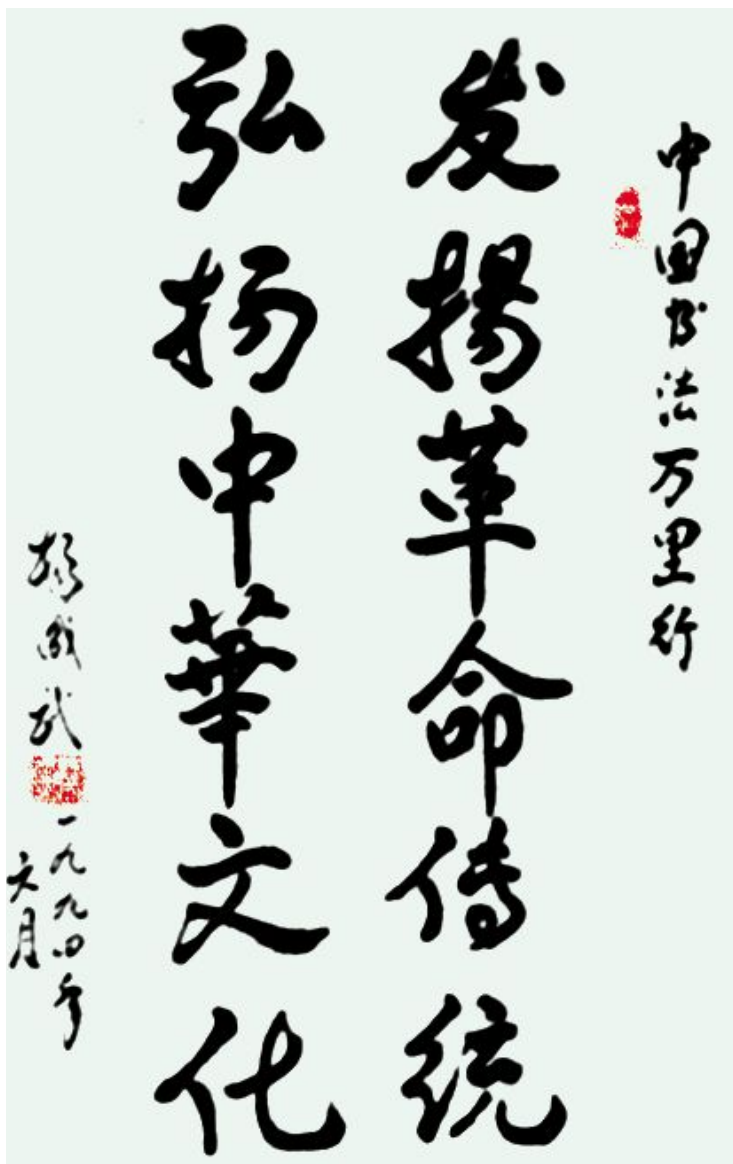 中国书法万里行
发揚革命傳统
弘扬中華文化
杨成武
一九九四年
六月